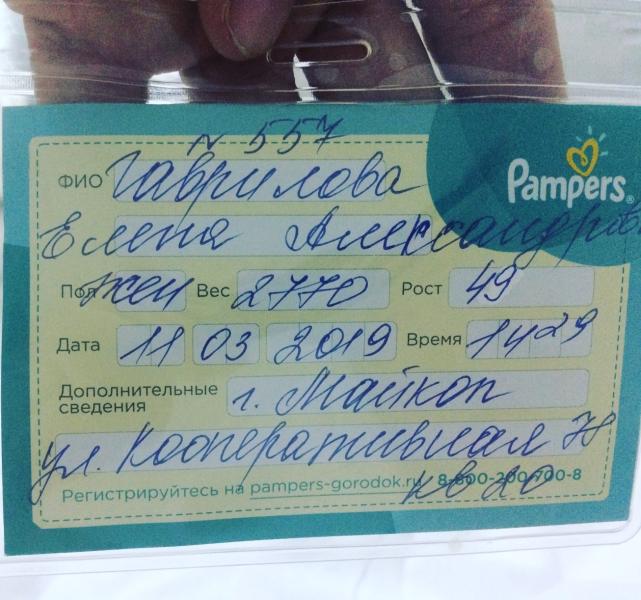 № 557
ФИО Гаврилова
Pampers®
Елена Александровна
Пол жен Вес 2770 Рост 49
Дата 11 03 2019 Время 14 29
Дополнительные сведения г. Майкоп
ул. Кооперативная
Регистрируйтесь на pampers-gorodok.ru 8-800-200-700-8
кв